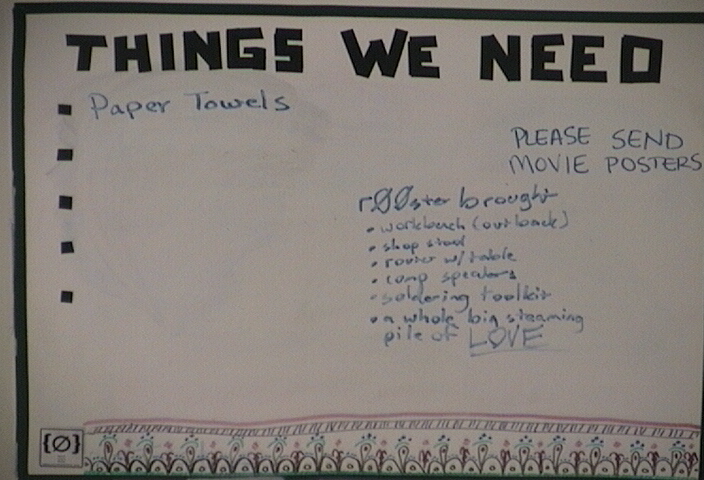 THINGS WE NEED
Paper Towels
PLEASE SEND
MOVIE POSTERS
rØØster brought
• workbench (out back)
• shop stool
• router w/ table
• comp speakers
• soldering toolkit
• a whole big steaming
pile of LOVE
{Ø}